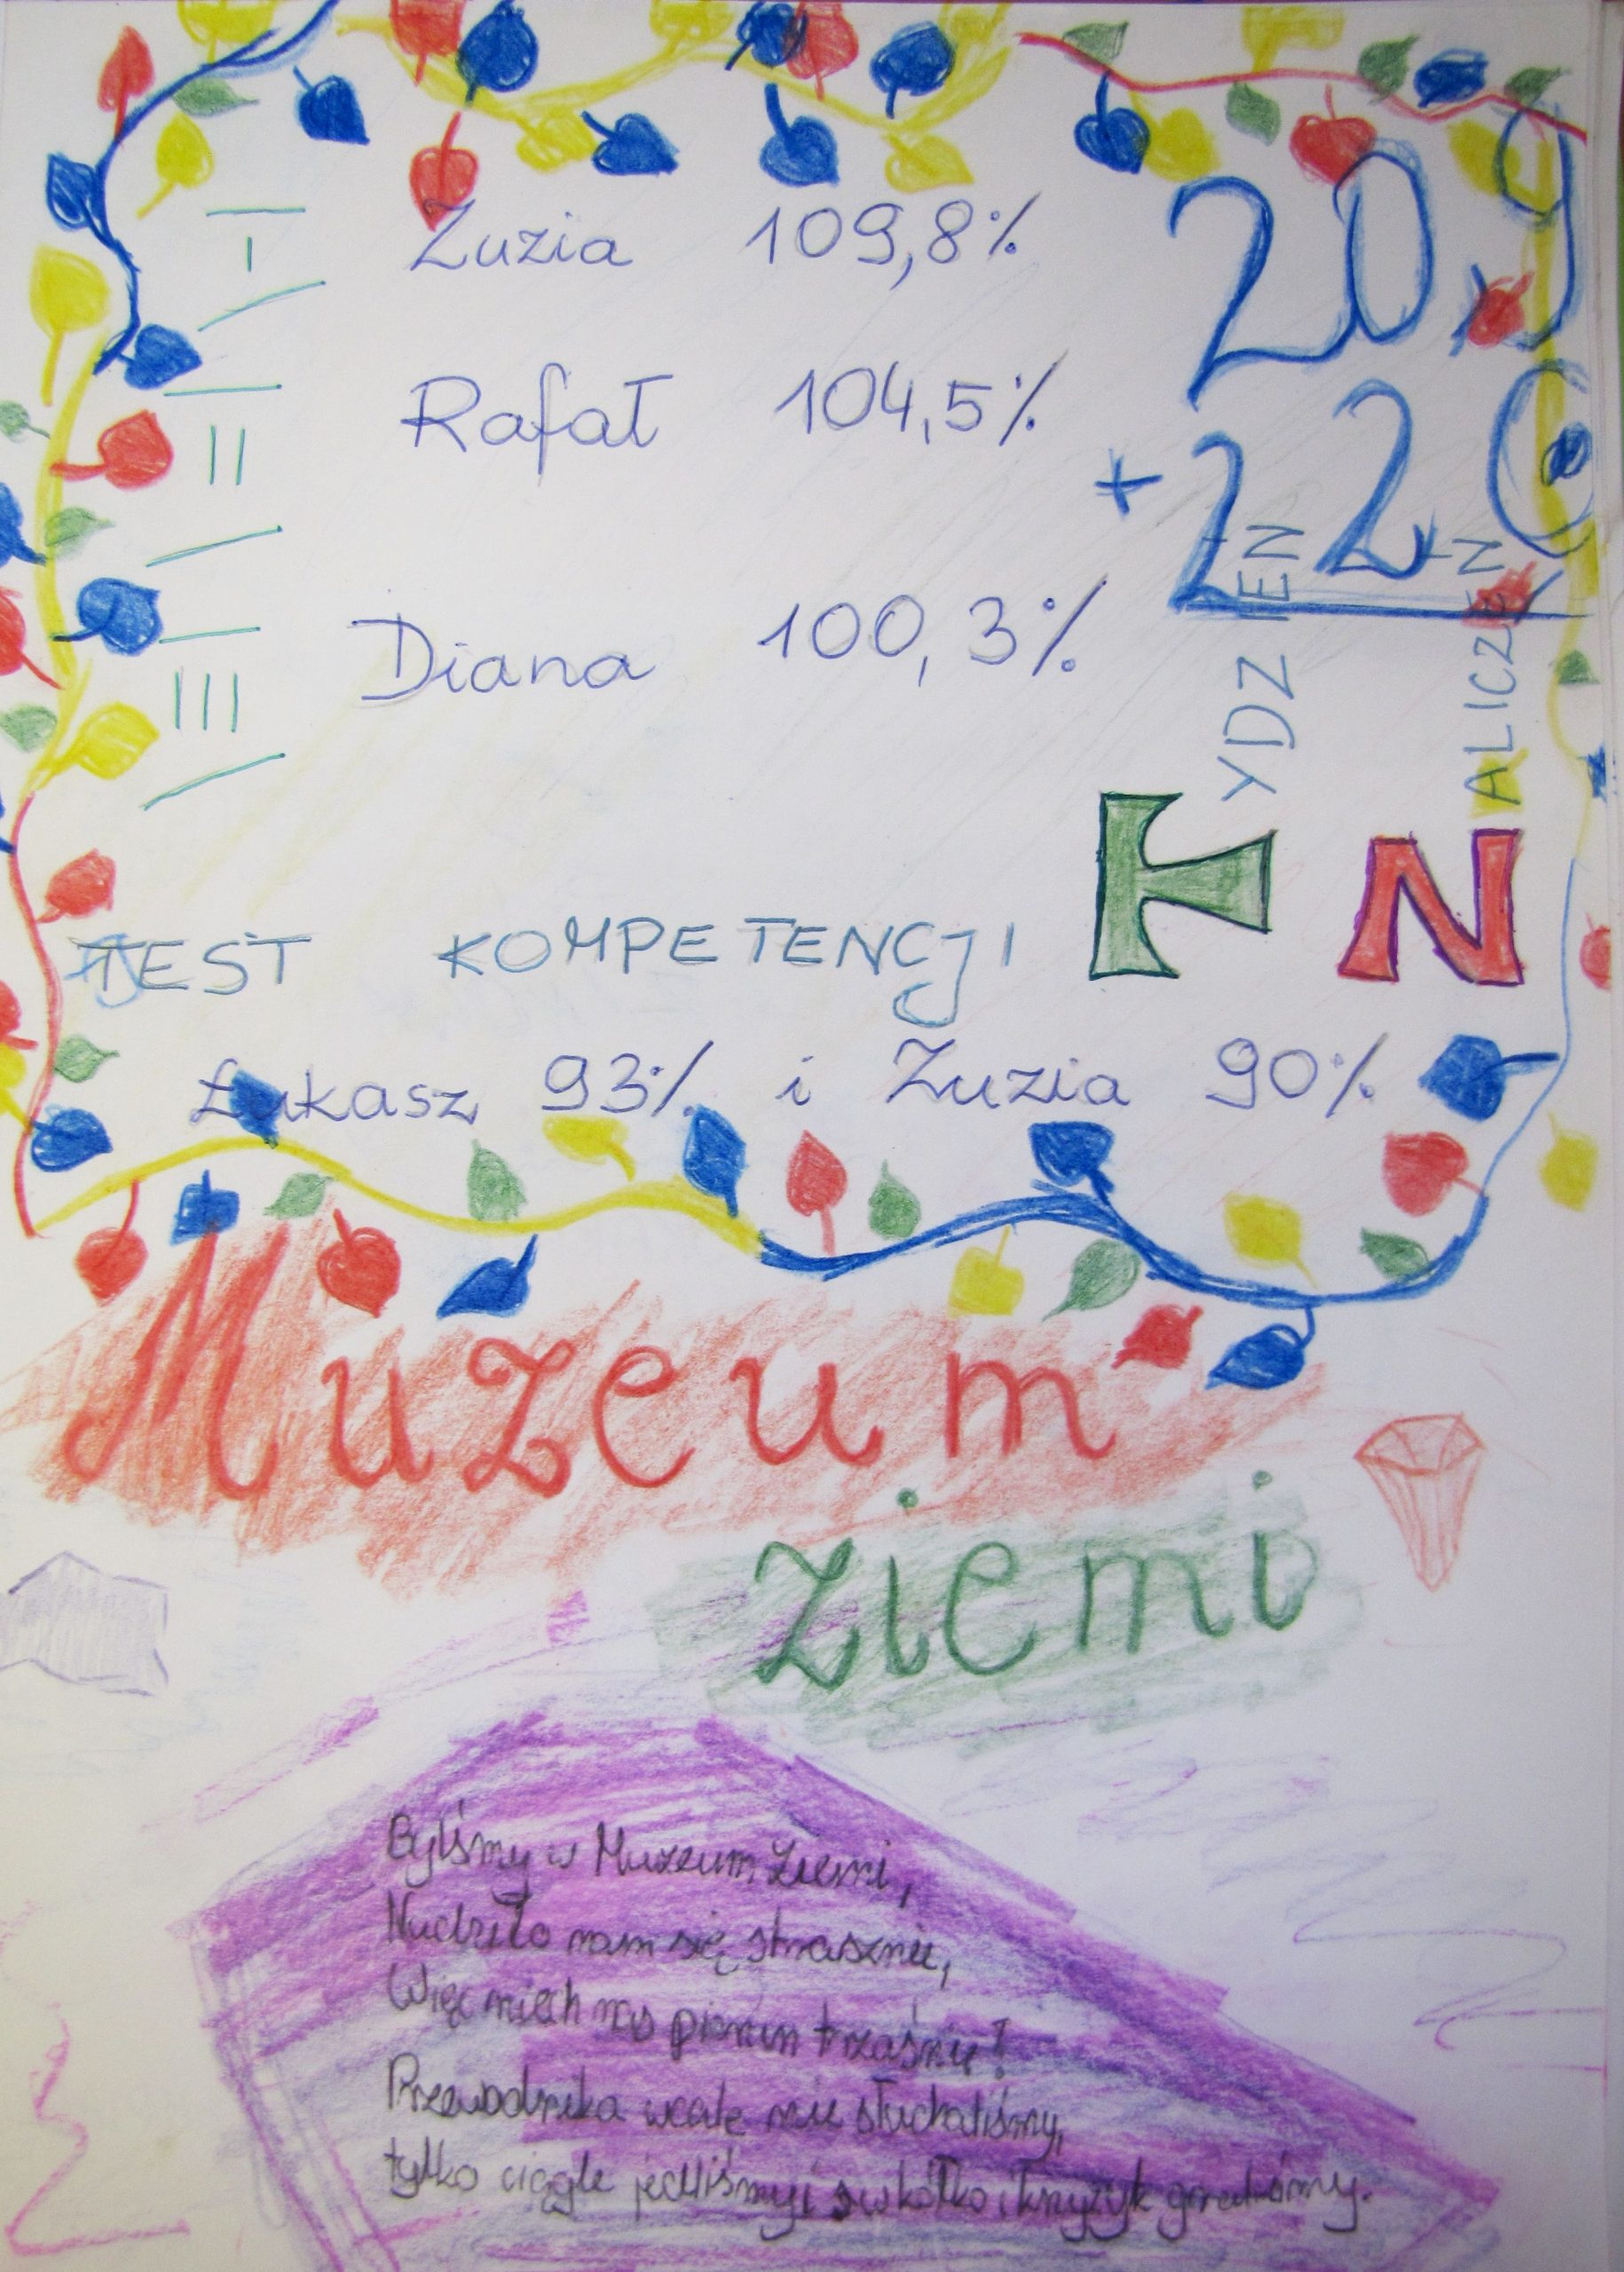 I Zuzia 109,8%
II Rafał 104,5%
III Diana 100,3%
209
+ 220
TYDZIEŃ
ZALICZEŃ
TEST KOMPETENCJI
Łukasz 93% i Zuzia 90%
Muzeum
Ziemi
Byliśmy w Muzeum Ziemi,
Nudziło nam się strasznie,
Więc niech nas piorun trzaśnie!
Przewodnika wcale nie słuchaliśmy,
tylko ciągle jedliśmy i w kółko i krzyżyk graliśmy.